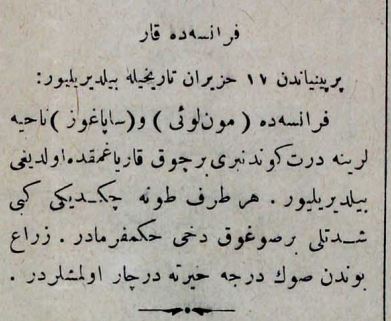 فرانسه‌ده قار
پرپینیاندن ١٧ حزیران تاریخیله بیلدیریلیور:
فرانسه‌ده (مون‌لوئی) و (ساپاغوز) ناحیه
لرینه درت کوندنبری برچوق قار یاغمقده اولدیغی
بیلدیریلیور. هر طرف طونه چکدیکی کبی
شدتلی بر صوغوق دخی حکمفرمادر. زراع
بوندن صوك درجه حیرته درچار اولمشلردر.